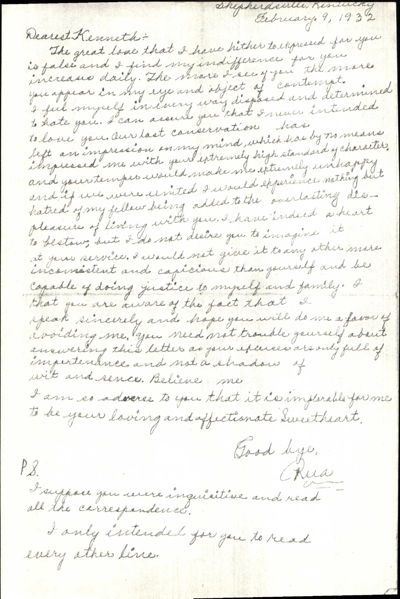 Shepherdsville, Kentucky
February 9, 1932
Dearest Kenneth:-
The great love that I have hither to expressed for you
is false and I find my indifference for you
increases daily. The more I see of you the more
you appear in my eye and object of contempt.
I feel myself in every way disposed and determined
to hate you. I can assure you that I never intended
to love you. Our last conservation has
left an impression on my mind which has by no means
impressed me with your extremely high standard of character,
and your temper would make me extremely unhappy
and if we were united I would experience nothing but
hatred of my fellow being added to the everlasting dis-
pleasure of living with you. I have indeed a heart
to bestow, but I do not desire you to imagine it
at your service. I would not give it to any other more
inconsistent and capicious than yourself and be
capable of doing justice to myself and family. I
that you are aware of the fact that I
speak sincerely and hope you will do me a favor of
avoiding me, you need not trouble yourself about
answering this letter as your excuses are only full of
impertenence and not a shadow of
wit and sence. Believe me
I am so adverse to you that it is impossible for me
to be your loving and affectionate Sweetheart.
Good bye.
P.S.
I suppose you were inquisitive and read
all the correspondence.
I only intended for you to read
every other line.